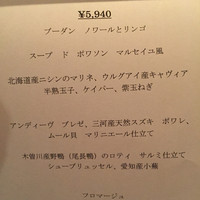 ¥5,940
ブーダン　ノワールとリンゴ
スープ　ド　ポワソン　マルセイユ風
北海道産ニシンのマリネ、ウルグアイ産キャヴィア
半熟玉子、ケイパー、紫玉ねぎ
アンディーヴ　ブレゼ、三河産天然スズキ　ポワレ、
ムール貝　マリニエール仕立て
木曽川産野鴨（尾長鴨）のロティ　サルミ仕立て
シューブリュッセル、愛知産小蕪
フロマージュ